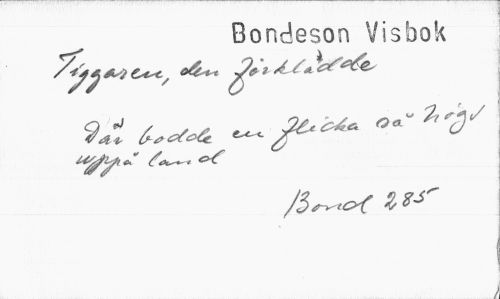 Bondeson Visbok
Tiggaren, den förklädde
Där bodde en flicka så högt
uppå land
Bond 285